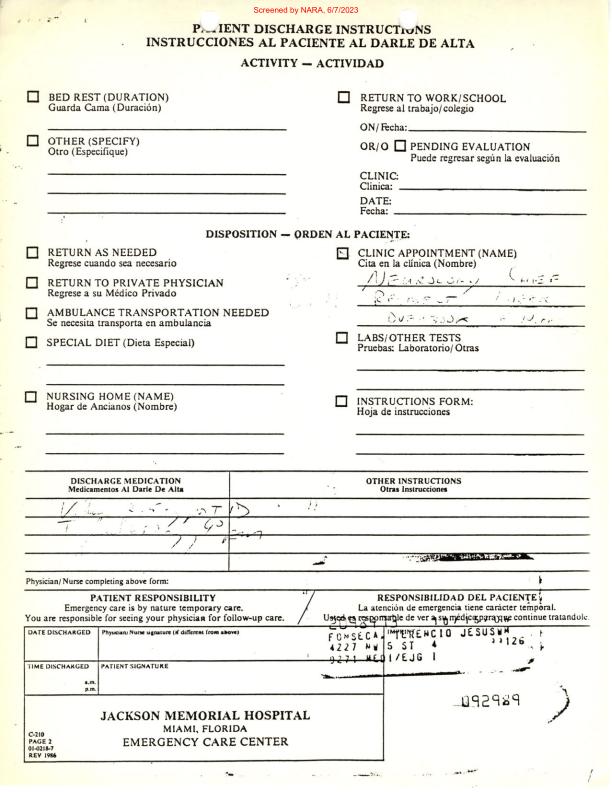 Screened by NARA, 6/7/2023
PATIENT DISCHARGE INSTRUCTIONS
INSTRUCCIONES AL PACIENTE AL DARLE DE ALTA
ACTIVITY — ACTIVIDAD
BED REST (DURATION)
Guarda Cama (Duración)
OTHER (SPECIFY)
Otro (Especifique)
RETURN TO WORK/SCHOOL
Regrese al trabajo/colegio
ON/Fecha:
OR/O PENDING EVALUATION
Puede regresar según la evaluación
CLINIC:
Clínica:
DATE:
Fecha:
DISPOSITION — ORDEN AL PACIENTE:
RETURN AS NEEDED
Regrese cuando sea necesario
RETURN TO PRIVATE PHYSICIAN
Regrese a su Médico Privado
AMBULANCE TRANSPORTATION NEEDED
Se necesita transporta en ambulancia
SPECIAL DIET (Dieta Especial)
NURSING HOME (NAME)
Hogar de Ancianos (Nombre)
CLINIC APPOINTMENT (NAME)
Cita en la clínica (Nombre)
Neurology Chief
LABS/OTHER TESTS
Pruebas: Laboratorio/Otras
INSTRUCTIONS FORM:
Hoja de instrucciones
DISCHARGE MEDICATION
Medicamentos Al Darle De Alta
OTHER INSTRUCTIONS
Otras Instrucciones
Physician/Nurse completing above form:
PATIENT RESPONSIBILITY
Emergency care is by nature temporary care.
You are responsible for seeing your physician for follow-up care.
RESPONSIBILIDAD DEL PACIENTE
La atención de emergencia tiene carácter temporal.
Usted es responsable de ver a su médico para que continue tratandolo.
DATE DISCHARGED
Physician/Nurse signature (if different from above)
FONSECA, TERENCIO JESUS
4227 NW 5 ST 4
9271 MEDI/EJG 1
TIME DISCHARGED
a.m.
p.m.
PATIENT SIGNATURE
092989
JACKSON MEMORIAL HOSPITAL
MIAMI, FLORIDA
EMERGENCY CARE CENTER
C-210
PAGE 2
01-0218-7
REV 1986